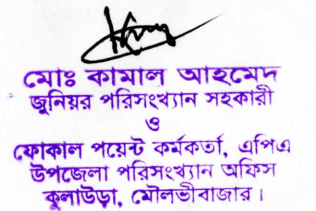 মোঃ কামাল আহমেদ
জুনিয়র পরিসংখ্যান সহকারী
ও
ফোকাল পয়েন্ট কর্মকর্তা, এপিএ
উপজেলা পরিসংখ্যান অফিস
কুলাউড়া, মৌলভীবাজার।